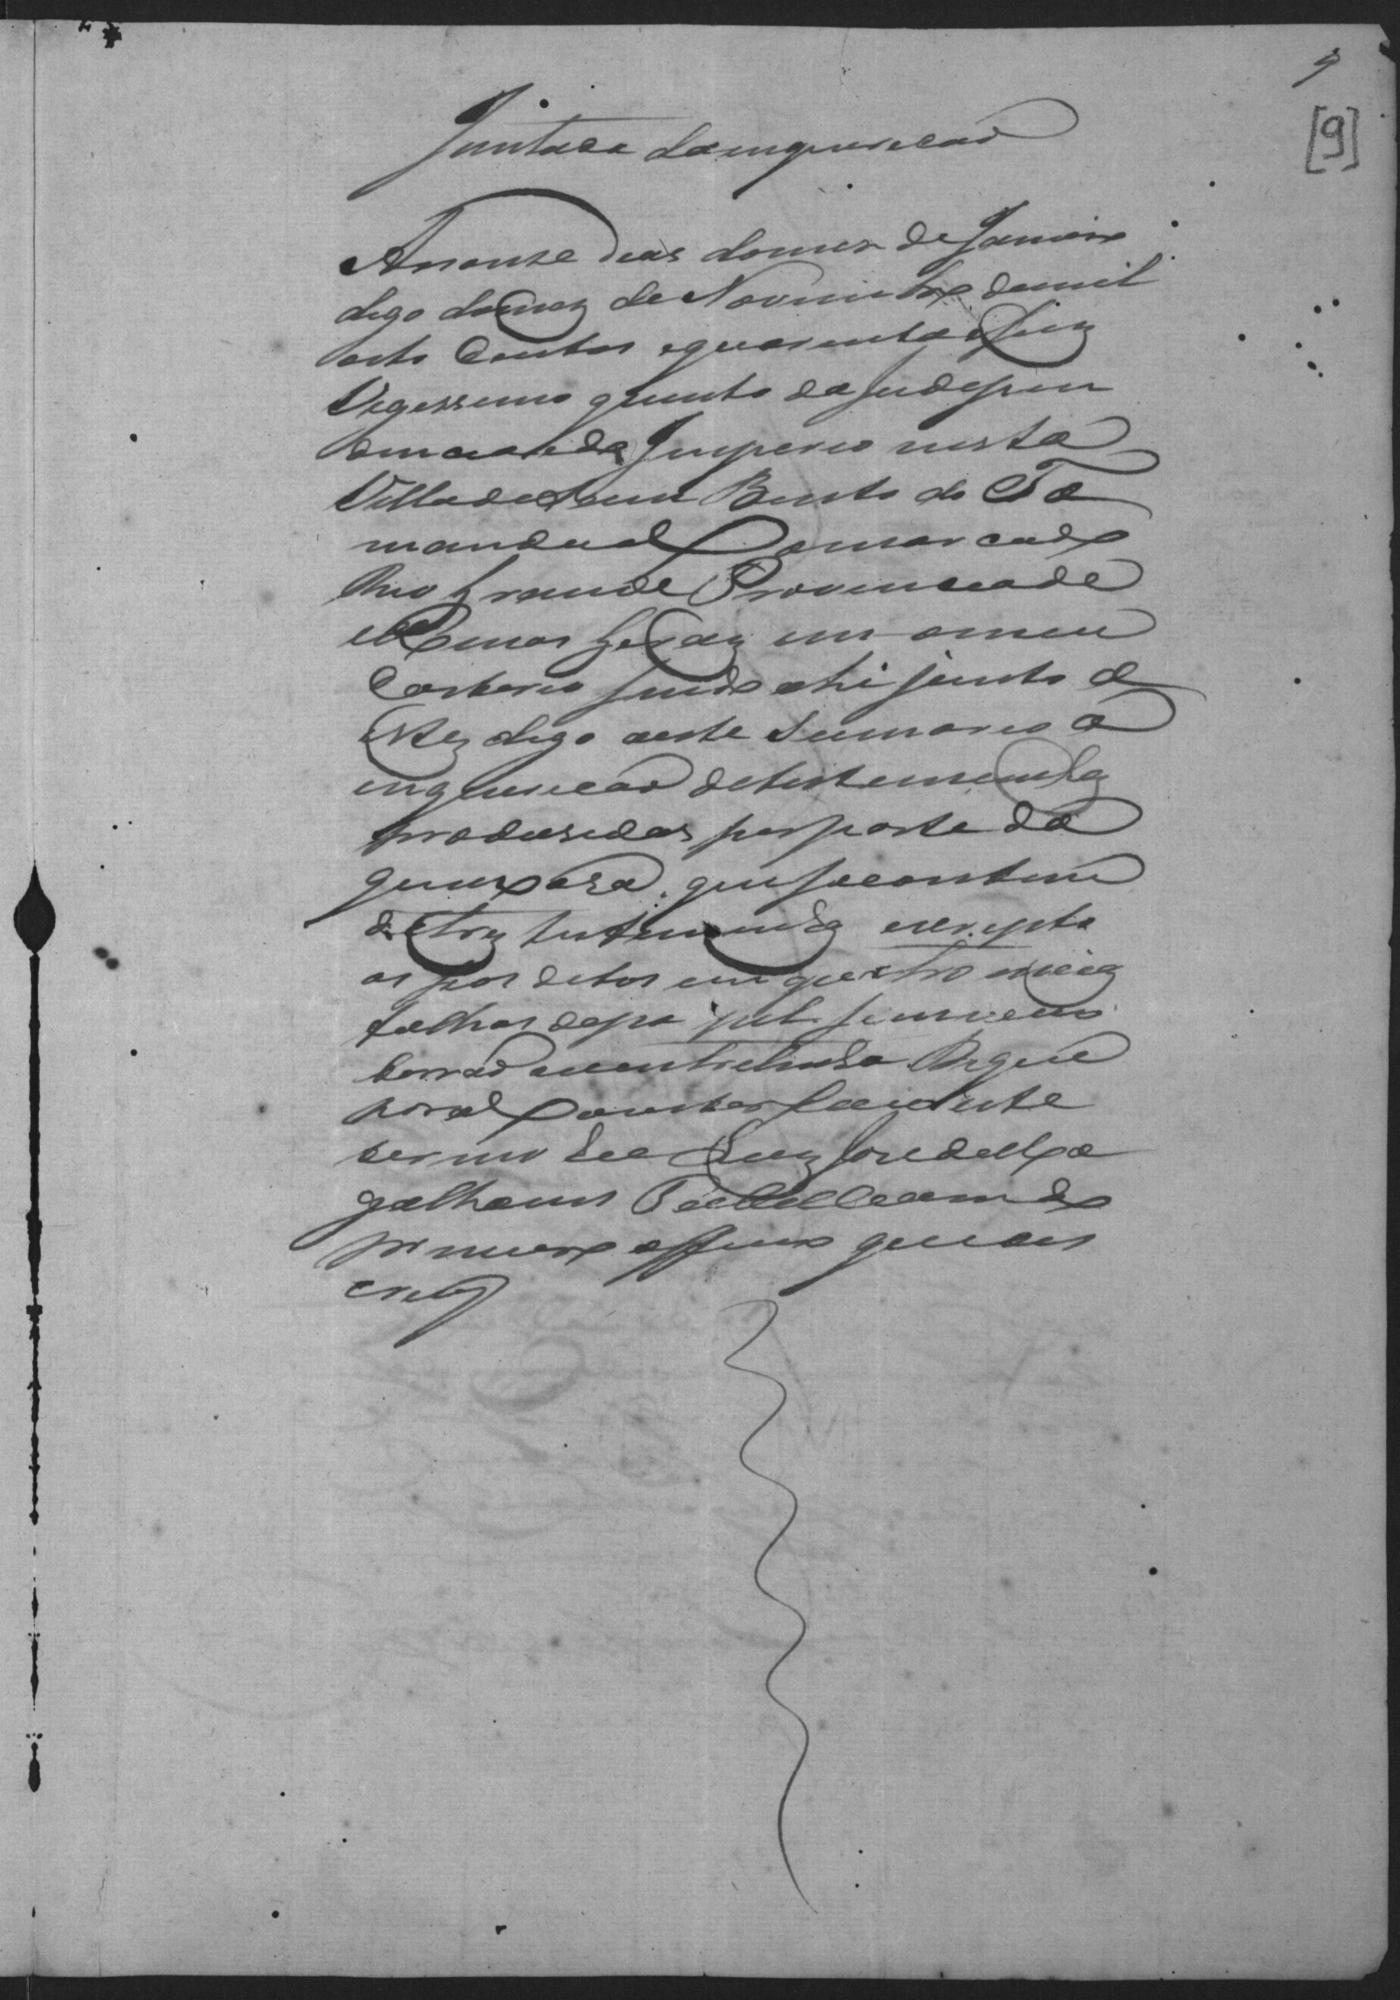 9
[9]
Juntada da inquirição
Aos onze dias do mes de Janeiro
digo do mez de Novembro de mil
oito Centos e quarenta e seis
Vigessimo quinto da Indepen
dencia e do Imperio nesta
Villa de Sam Bento do Ta
mandua Comarca do
Rio Grande Provincia de
Minas Geraiz em o meu
Cartorio sendo ahi junto a
estez digo a este Sumario a
inquirição de testemunhaz
produsidas por parte da
queixoza, que se contem
de trez testemunhaz escripta
os seos ditos em quatro meiaz
folhas de papel sem vicio
borrão ou entrelinha De que
para Constar faço este
termo Eu Luiz Jose de Ma
galhaens
primeiro officio que o es
crevy